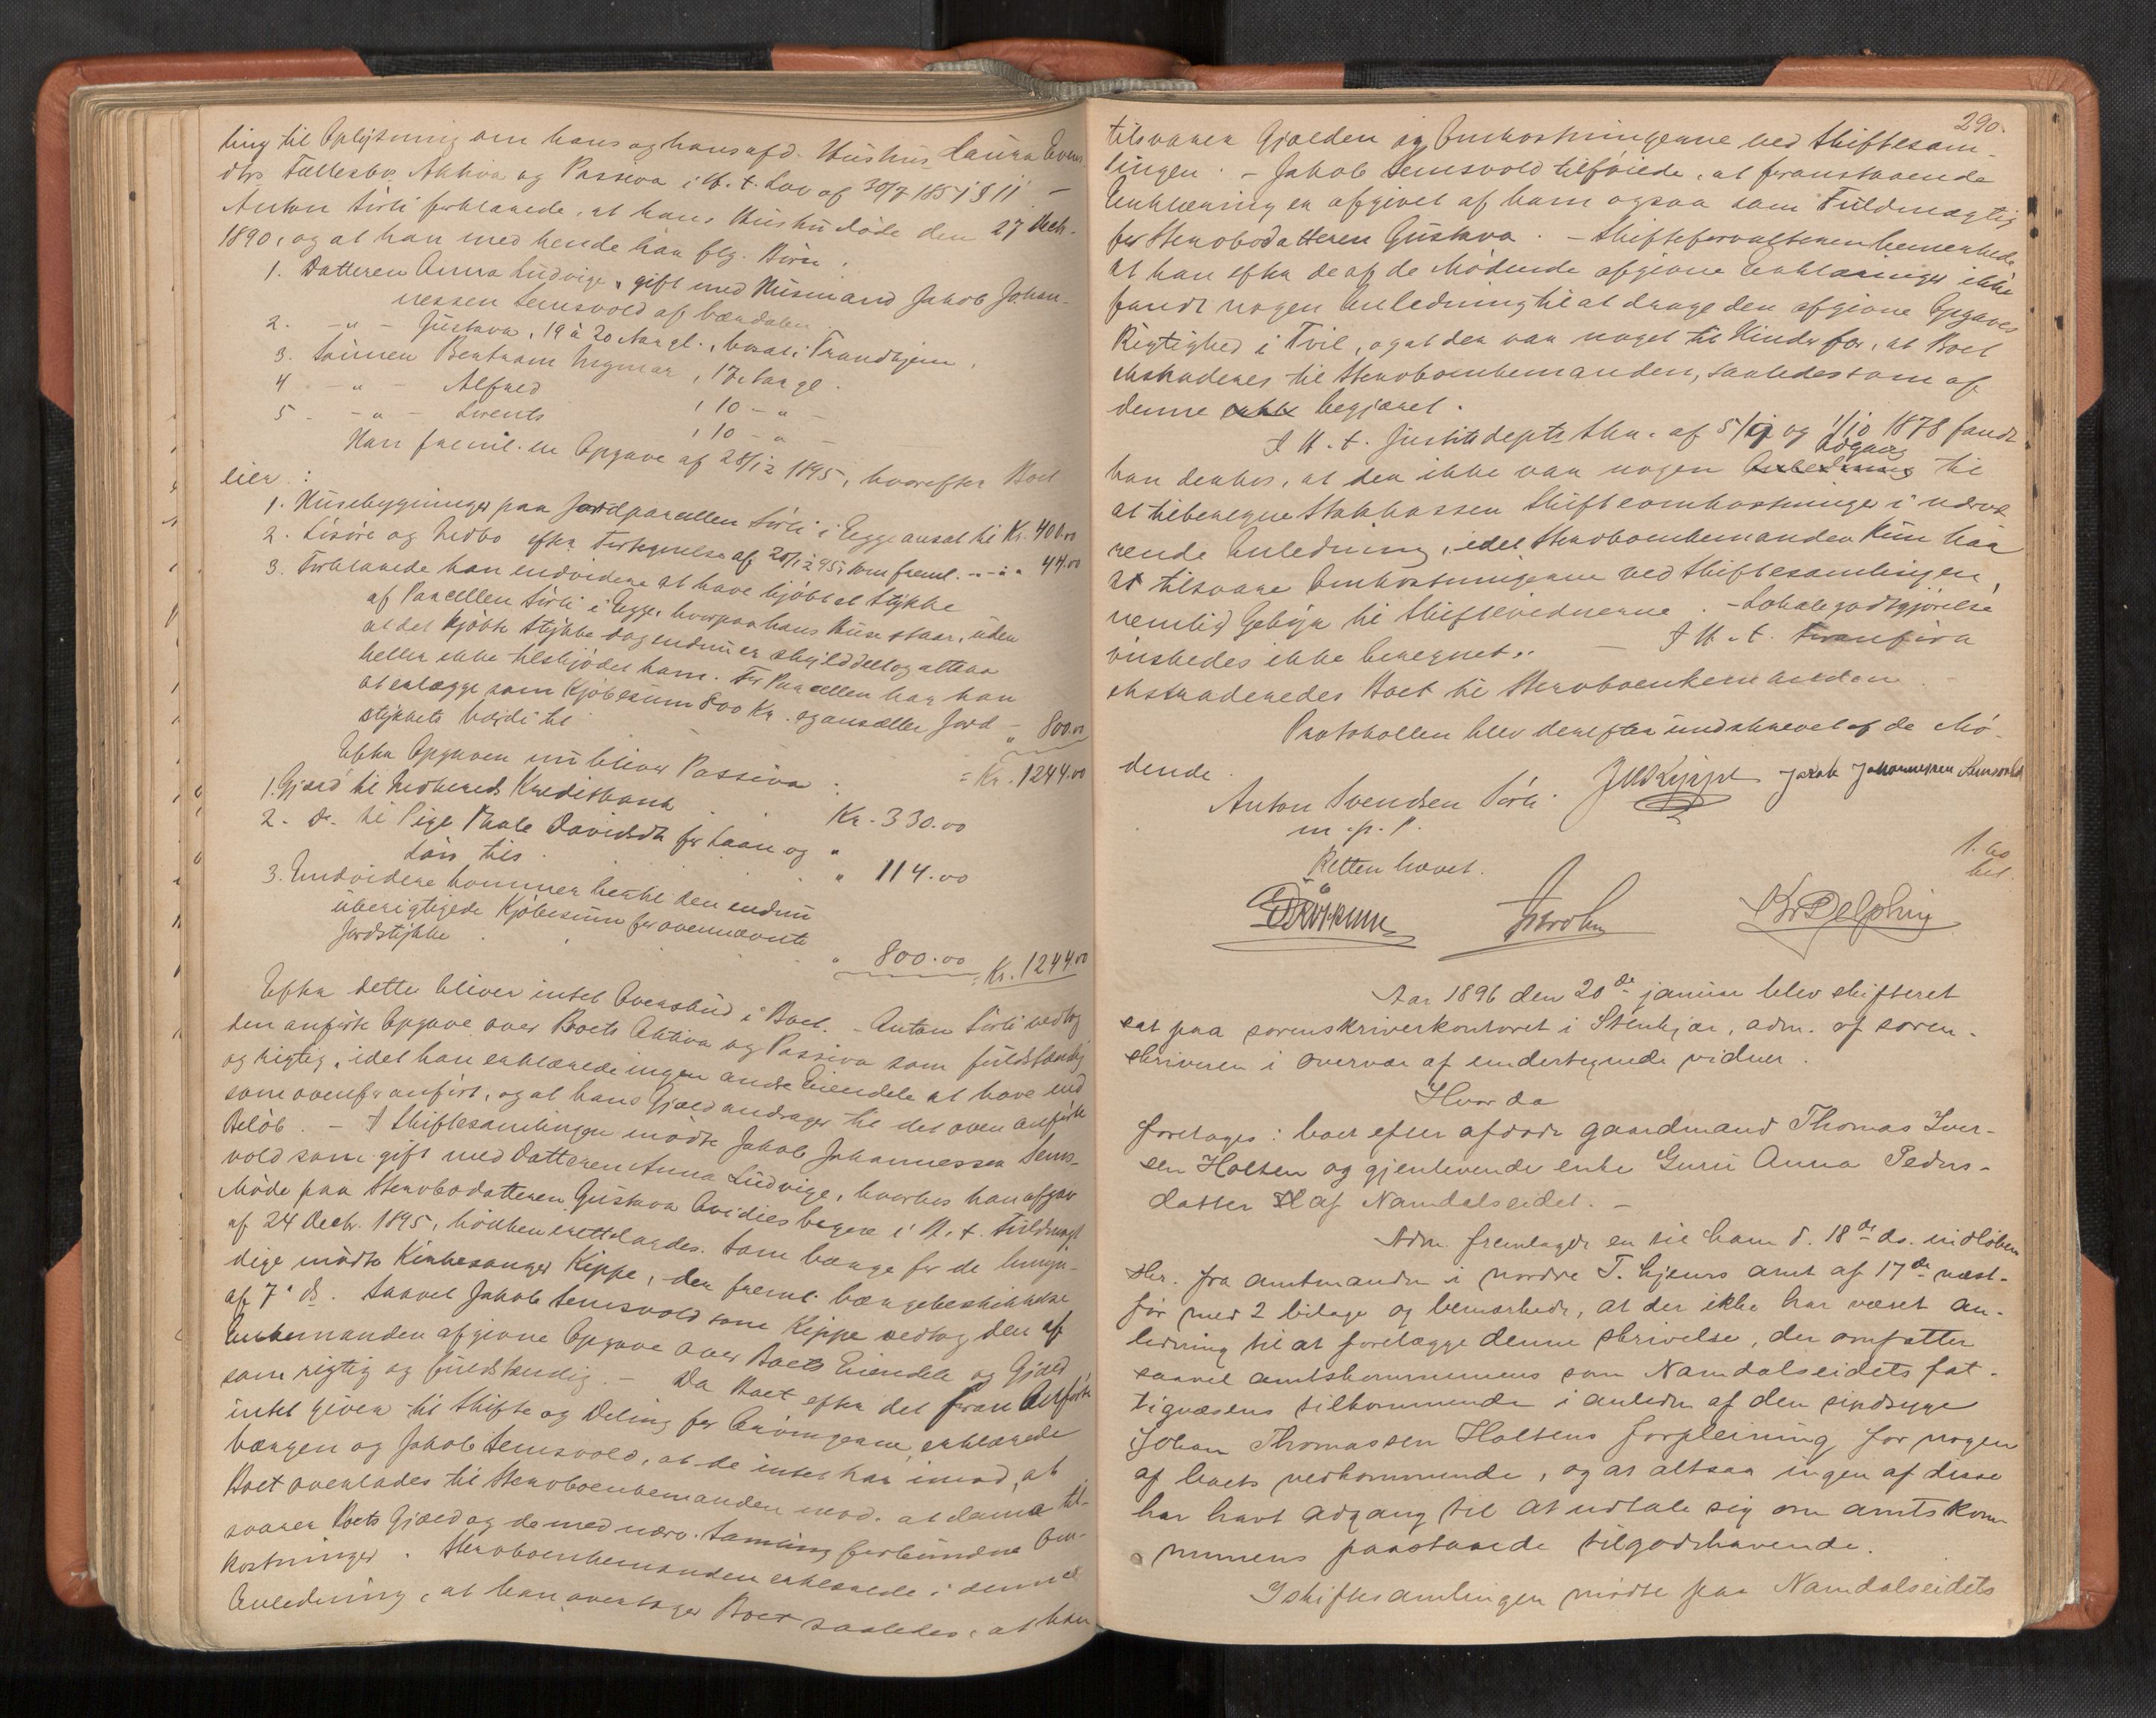 ling til Oplysning om hans og hans afd. Hustrus Laura Evens
dtrs Fællesbos Aktiva og Passiva i H. t. Lov af 30/7 1851 § 11. —
Anton Sirli forklarede, at hans Hustru døde den 27 Decb.
1890, og at han med hende har flg. Börn:
1. Datteren Anna Ludvige, gift med Husmand Jakob Johan-
nessen Semsvold af Værdalen
2. - " - Gustava, 19 à 20 Aar gl., bosat i Trondhjem.
3. Sönnen Bertram Ingmar, 17 Aar gl.
4 - " - Alfred , 10 - " -
5 - " - Lorents , 10 - " -
Han freml. en Opgave af 28/12 1895, hvorefter Boet
eier:
1. Husebygninger paa Jordparcellen Sirli i Egge ansat til Kr. 400.00
2. Lösöre og Indbo efter Fortegnelse af 20/12 95, som freml. - " - " 44.00
3. Forklarede han endvidere at have kjöbt et Stykke
af Parcellen Sirli i Egge, hvorpaa hans Huse staar, uden
at det kjöbte Stykke dog endnu er skylddelt og altsaa
heller ikke tilskjödet ham. For Parcellen har han
at erlægge som Kjöbesum 800 Kr. og ansætter Jord-
stykkets Værdi til " 800.00
= Kr. 1244.00
Efter Opgaven nu bliver Passiva:
1. Gjæld til Indherreds Kreditbank Kr. 330.00
2. Do. til Pige Beate Davidsdtr for Laan og
Lön tils. " 114.00
3. Endvidere kommer hertil den endnu
uberigtigede Kjöbesum for ovennævnte
Jordstykke " 800.00 = Kr. 1244.00
Efter dette bliver intet Overskud i Boet. - Anton Sirli vedtog
den anförte Opgave over Boets Aktiva og Passiva som fuldstændig
og rigtig, idet han erklærede ingen andre Eiendele at have end
som ovenfor anfört, og at hans Gjæld andrager til det oven anförte
Belöb. - I Skiftesamlingen mödte Jakob Johannessen Sems-
vold som gift med Datteren Anna Ludvige, hvorhos han afgav
Möde paa Stervbodatteren Gustava Ovidies vegne i H. t. Fuldmagt
af 24 Decbr. 1895, hvilken irettelagdes. Som Værge for de Umyn-
dige mödte Kirkesanger Kippe, der freml. Værgebeskikkelse
af 7. ds. Saavel Jakob Semsvold som Kippe vedtog den af
Enkemanden afgivne Opgave over Boets Eiendele og Gjæld
som rigtig og fuldstændig. - Da Boet efter det foran Anförte
intet giver til Skifte og Deling for Arvingerne, erklærede
Værgen og Jakob Semsvold, at de intet har imod, at
Boet overlades til Stervboenkemanden mod, at denne til-
svarer Boets Gjæld og de med nærv. Samling forbundne Om-
kostninger. Stervboenkemanden erklærede i denne
Anledning, at han overtager Boet saaledes, at han
290.
tilsvarer Gjælden og Omkostningerne ved Skiftesam-
lingen. - Jakob Semsvold tilföiede, at foranstaaende
Erklæring er afgivet af ham ogsaa som Fuldmægtig
for Stervbodatteren Gustava. - Skifteforvalteren bemærkede
at han efter de af de Mödende afgivne Erklæringer ikke
fandt nogen Anledning til at drage den afgivne Opgaves
Rigtighed i Tvil, og at der var noget til Hinder for, at Boet
extraderes til Stervboenkemanden, saaledes som af
denne begjæret.
I H. t. Justitsdepts Skr. af 5/9 og 1/10 1878 fandt
Adgang
han derhos, at der ikke var nogen Anledning til
at tilberegne Statskassen Skifteomkostninger i nærvæ-
rende Anledning, idet Stervboenkemanden kun har
at tilsvare Omkostningerne ved Skiftesamlingen,
nemlig Gebyr til Skiftevidnerne. - Lokalegodtgjörelse
önskedes ikke beregnet. — I H. t. Foranförte
extraderedes Boet til Stervboenkemanden.
Protokollen blev derefter underskrevet af de Mö-
dende.
Anton Svendsen Sirli. J M Kippe Jakob Johannessen Semsvold
m. p. P.
Retten hævet.
1.60
bet.
Chr Delphin
Aar 1896 den 20de januar blev skifteret
sat paa sorenskriverkontoret i Stenkjær, adm. af soren-
skriveren i overvær af undertegnede vidner.
Hvorda
foretages: boet efter afdøde gaardmand Thomas Iver-
sen Holten og gjenlevende enke Guru Anna Peders-
datter af Namdalseidet. -
Adm. fremlagde en til ham d. 18de ds. indløben
skr. fra amtmanden i nordre T.hjems amt af 17de næst-
før med 2 bilage og bemærkede, at der ikke har været an-
ledning til at forelægge denne skrivelse, der omfatter
saavel amtskommunens som Namdalseidets fat-
tigvæsens tilkommende i anledn. af den sindssyge
Johan Thomassen Holtens forpleining for nogen
af boets vedkommende, og at altsaa ingen af disse
har havt adgang til at udtale sig om amtskom-
munens paastaaede tilgodehavende.
I skiftesamlingen mødte paa Namdalseidets